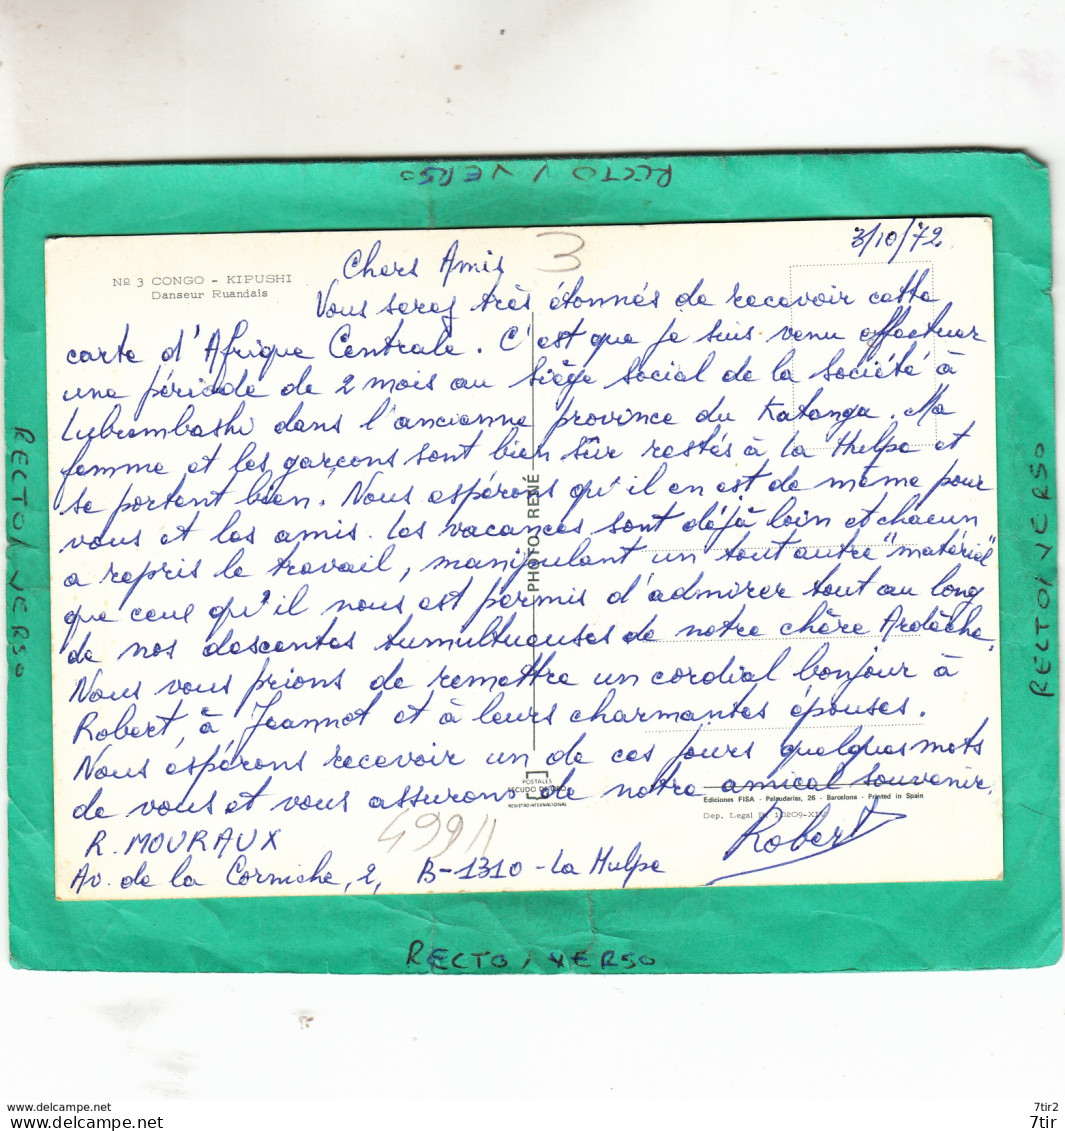 RECTO / VERSO
3/10/72
Nº 3 CONGO - KIPUSHI
Danseur Ruandais
3
Chers Amis
Vous serez très étonnés de recevoir cette
carte d'Afrique Centrale. C'est que je suis venu effectuer
une période de 2 mois au siège social de la société à
Lubumbashi dans l'ancienne province du Katanga. Ma
femme et les garçons sont bien sûr restés à La Hulpe et
se portent bien. Nous espérons qu'il en est de même pour
vous et les amis. Les vacances sont déjà loin et chacun
a repris le travail, manipulant un tout autre "matériel"
que ceux qu'il nous est permis d'admirer tout au long
de nos descentes tumultueuses de notre chère Ardèche.
Nous vous prions de remettre un cordial bonjour à
Robert, à Jeannot et à leurs charmantes épouses.
Nous espérons recevoir un de ces jours quelques mots
de vous et vous assurons de notre amical souvenir.
R. MOURAUX
Robert
Av. de la Corniche, 2, B-1310 - La Hulpe
49911
PHOTO RENÉ
POSTALES
ESCUDO DE ORO
REGISTRO INTERNACIONAL
Ediciones FISA - Palaudarias, 26 - Barcelona - Printed in Spain
Dep. Legal B. 10209-XIV
RECTO / VERSO
RECTO / VERSO
RECTO / VERSO
www.delcampe.net
www.delcampe.net
7tir2
7tir